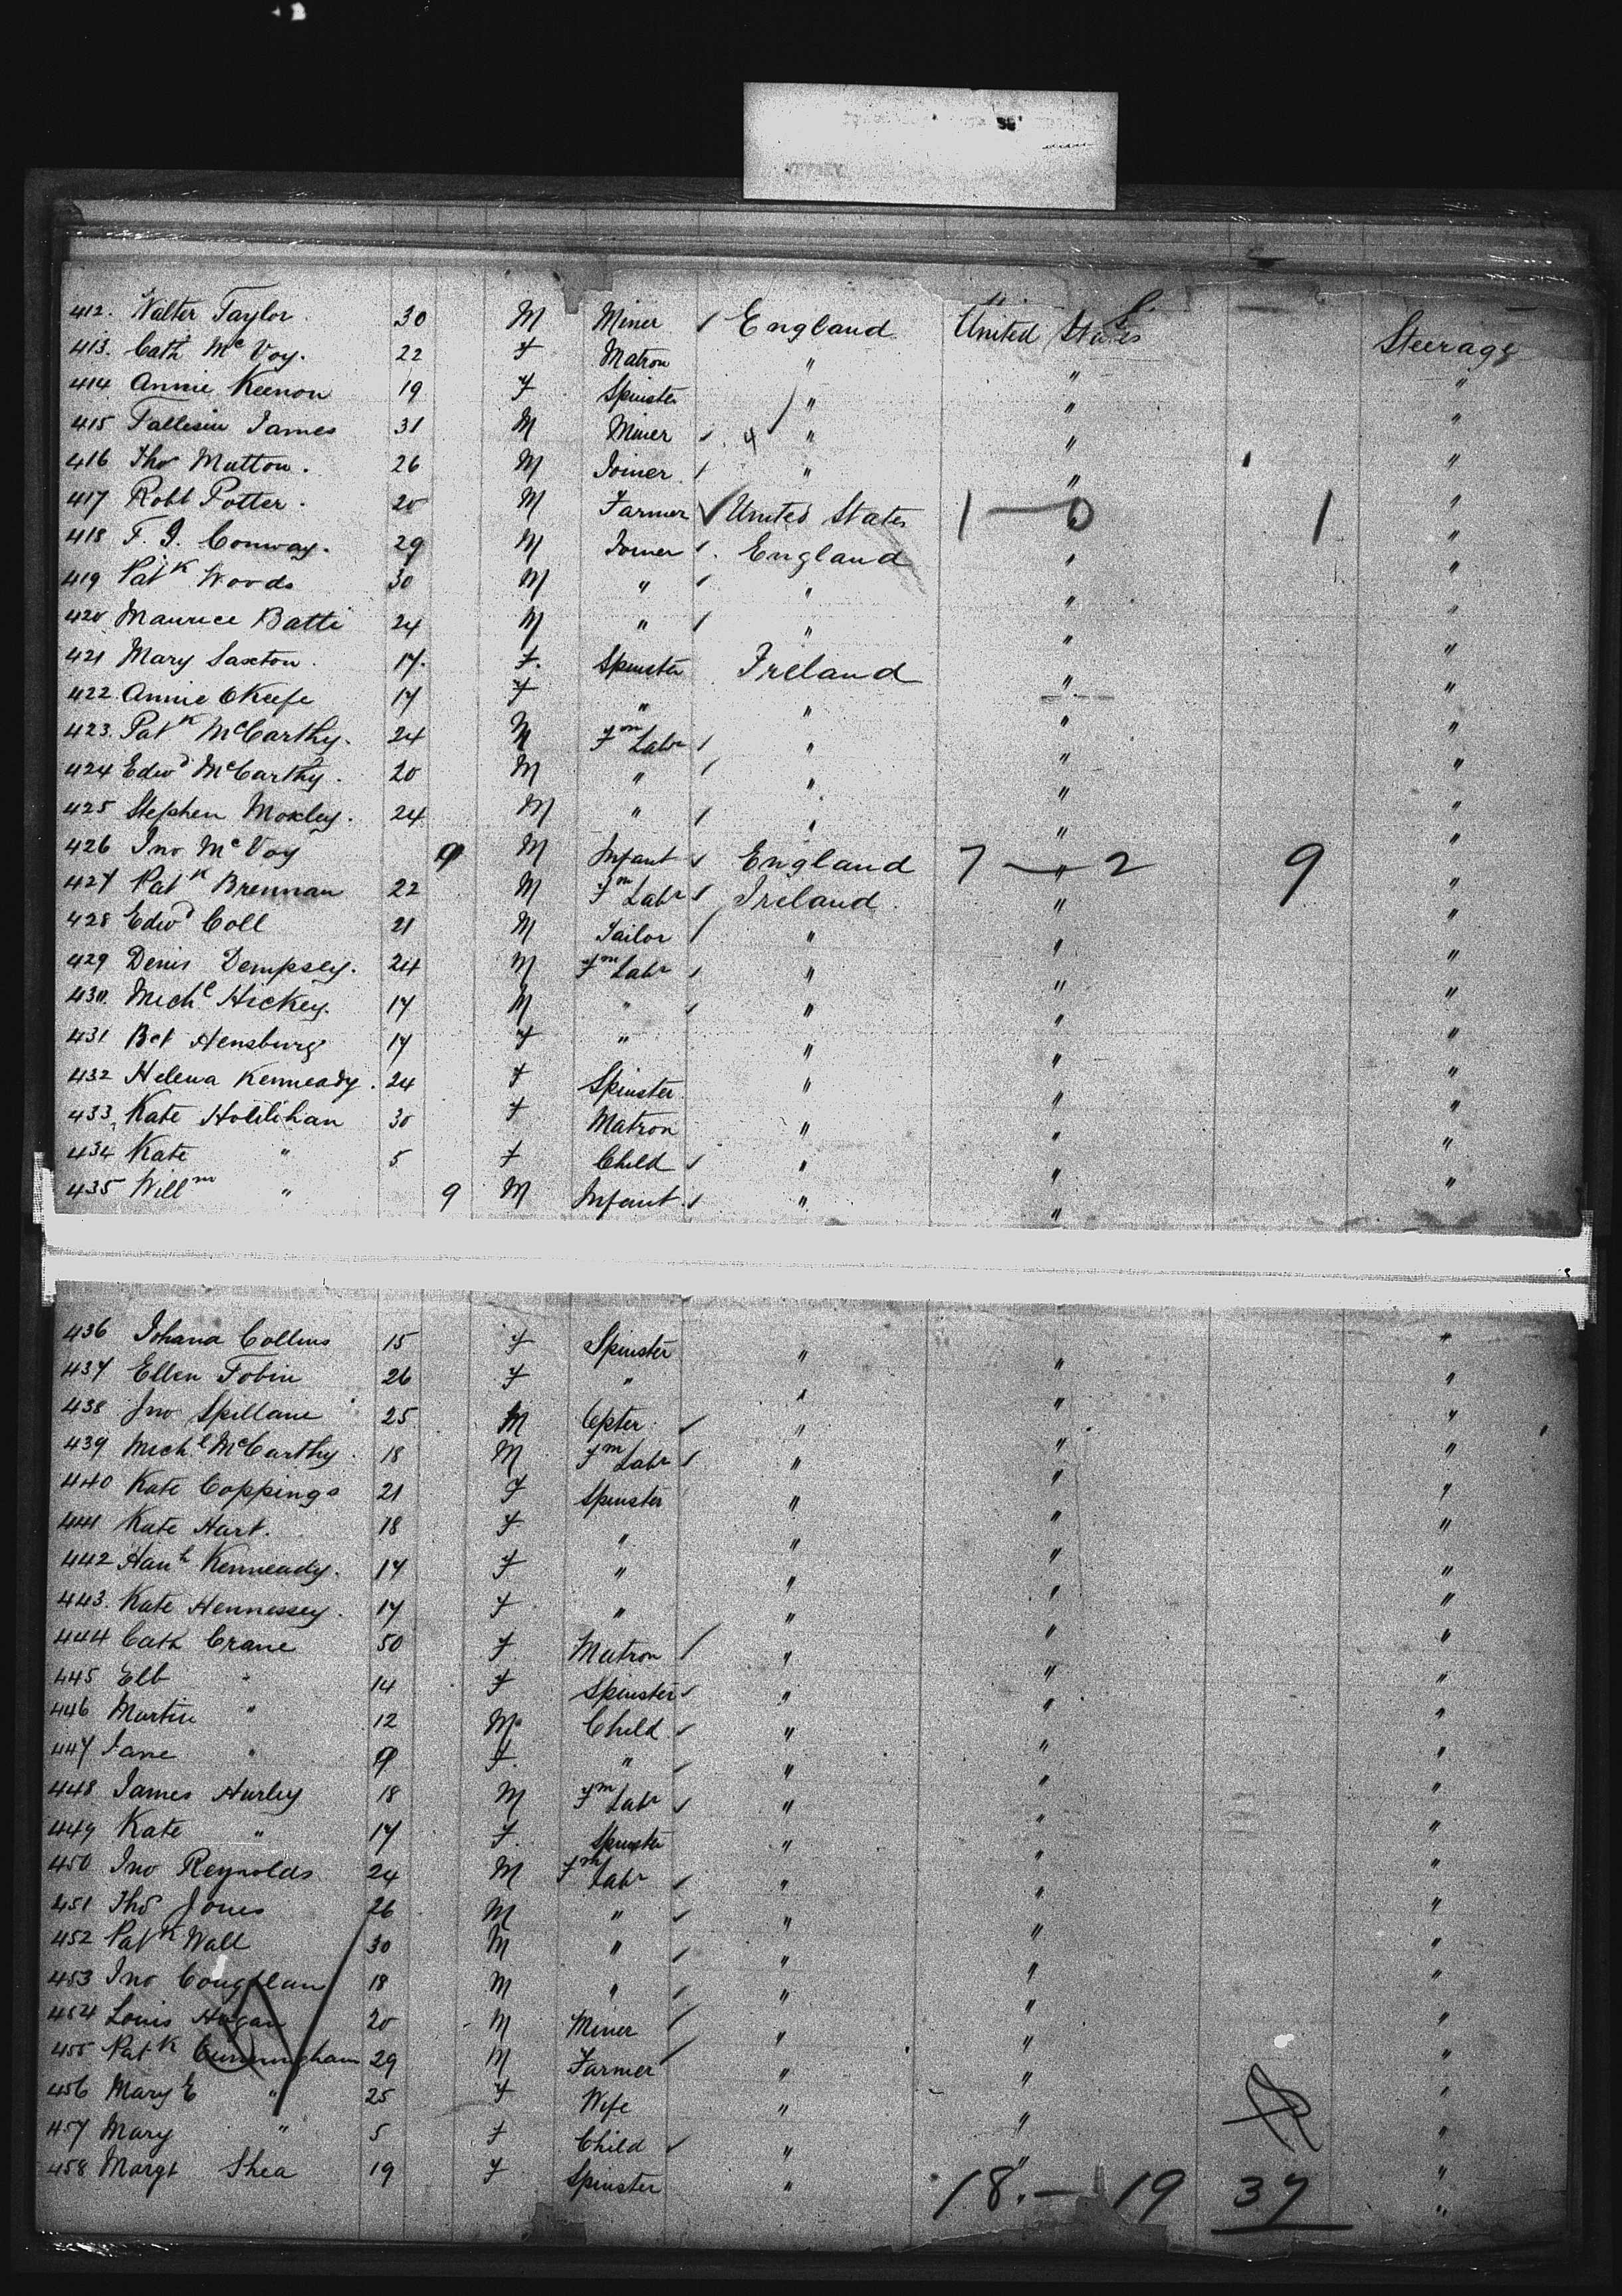 412. Walter Taylor. 30 M Miner ✓ England United States Steerage
413. Cath Mc Voy. 22 F Matron " " "
414 Annie Keenon 19 F Spinster " " "
415 Tallesin James 31 M Miner ✓ 4 " " "
416 Thos Mutton. 26 M Joiner ✓ " " "
417 Robt Potter. 20 M Farmer ✓ United States 1 — 0 1 "
418 F. J. Conway. 29 M Joiner ✓ England " "
419 Patk Woods 30 M " ✓ " " "
420 Maurice Batti 24 M " ✓ " " "
421 Mary Saxton. 17. F. Spinster Ireland " "
422. Annie OKeefe 17 F " " " "
423. Patk McCarthy. 24 M Fm Labr ✓ " " "
424 Edwd McCarthy. 20 M " ✓ " " "
425 Stephen Moxley. 24 M " ✓ " " "
426 Jno Mc Voy 9 M Infant ✓ England 7 — 2 9 "
427 Patk Brennan 22 M Fm Labr ✓ Ireland " "
428 Edwd Coll 21 M Tailor ✓ " " "
429 Denis Dempsey. 24 M Fm Labr ✓ " " "
430. Michl Hickey. 17 M " ✓ " " "
431 Bet Hensburg 17 F " " " "
432 Helena Kenneady. 24 F Spinster " " "
433. Kate Holilihan 30 F Matron " " "
434 Kate " 5 F Child ✓ " " "
435 Willm " 9 M Infant ✓ " " "
436 Johana Collins 15 F Spinster " " "
437 Ellen Tobin 26 F " " " "
438 Jno Spillane 25 M Cpter ✓ " " "
439 Michl McCarthy. 18 M Fm Labr ✓ " " "
440 Kate Coppings 21 F Spinster " " "
441 Kate Hart. 18 F " " " "
442 Hanh Kenneady. 17 F " " " "
443. Kate Hennessey. 17 F " " " "
444 Cath Crane 50 F Matron ✓ " " "
445 " 14 F Spinster ✓ " " "
446 Martin " 12 M Child ✓ " " "
447 Jane " 9 F. " ✓ " " "
448 James Hurley 18 M Fm Labr ✓ " " "
449 Kate " 17 F. Spinster " " "
450 Jno Reynolds. 24 M Fm Labr ✓ " " "
451 Thos Jones 26 M " ✓ " " "
452 Patk Wall 30 M " ✓ " " "
453 Jno Coughlan 18 M " ✓ " " "
454 Louis Hogan 20 M Miner ✓ " " "
455 Patk Cunningham 29 M Farmer ✓ " " "
456 Mary E " 25 F Wife " " "
457 Mary " 5 F Child ✓ " " "
458 Margt Shea 19 F Spinster " " "
18. — 19 37